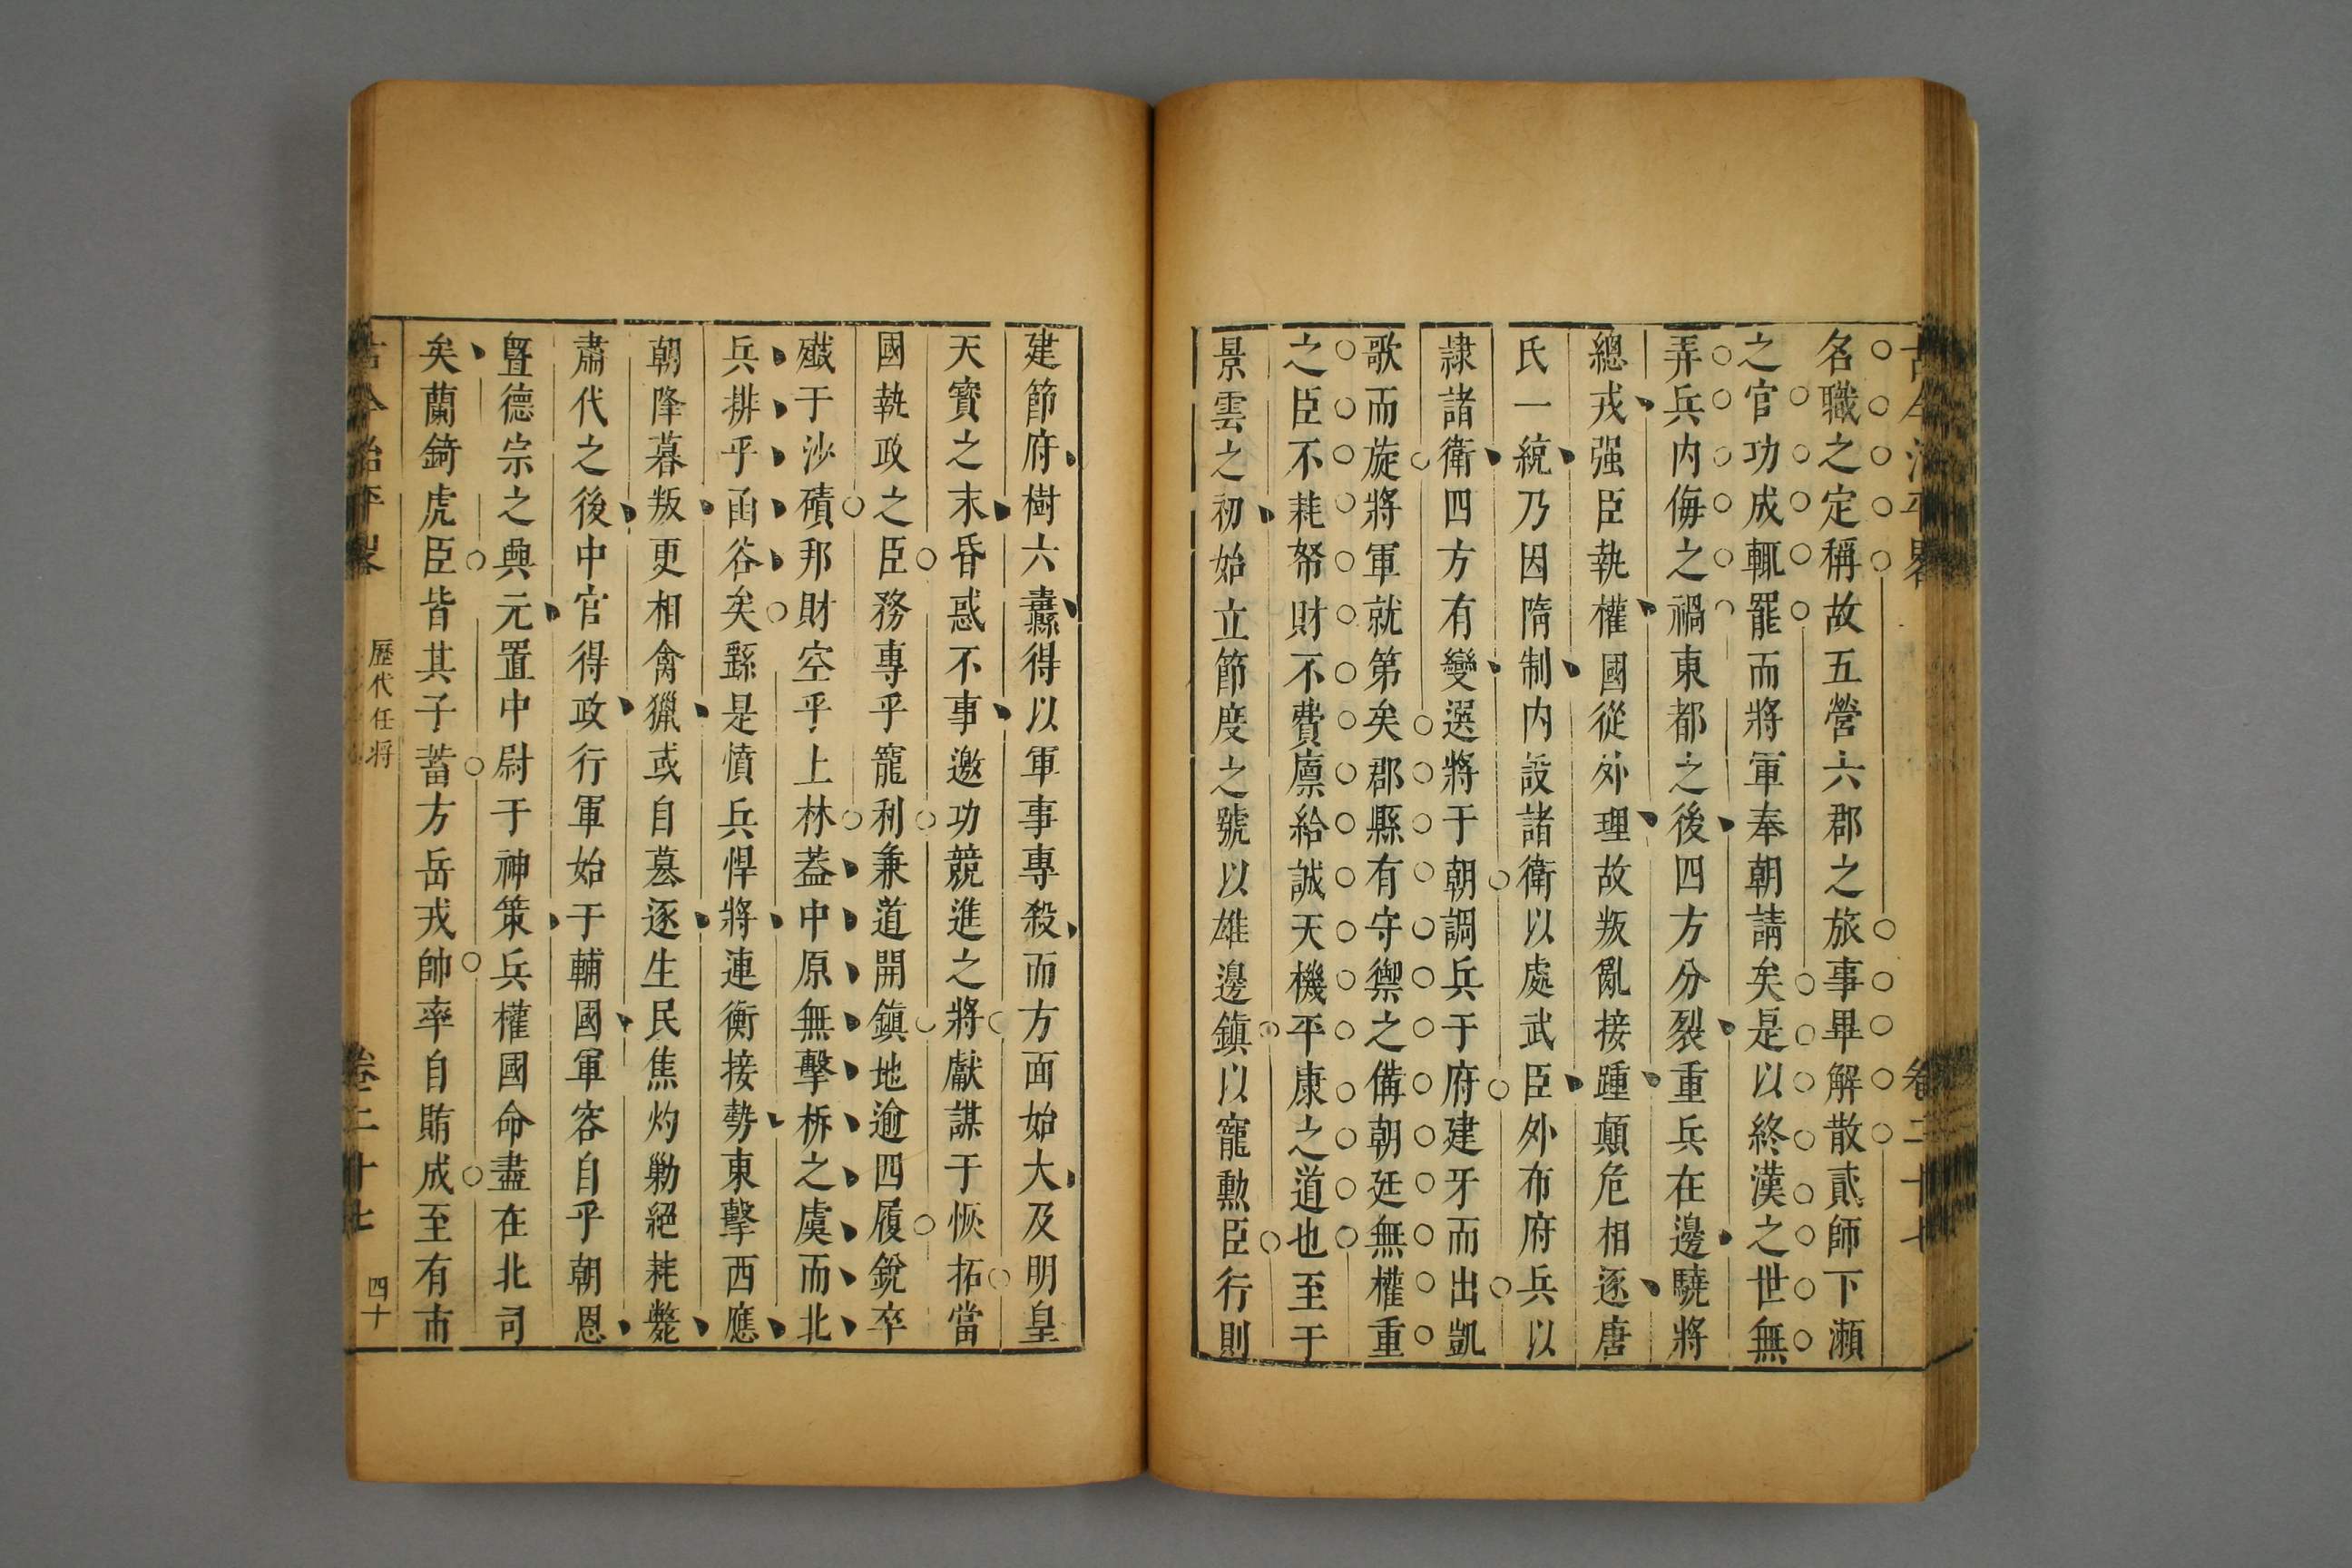 名職之定稱故五營六郡之旅事畢解散貳師下瀬
之官功成輒罷而將軍奉朝請矣是以終漢之世無
弄兵内侮之禍東都之後四方分裂重兵在邊驍將
總戎强臣執權國從外理故叛亂接踵顛危相逐唐
氏一統乃因隋制内設諸衛以處武臣外布府兵以
隷諸衛四方有變選將于朝調兵于府建牙而出凱
歌而旋將軍就第矣郡縣有守禦之備朝廷無權重
之臣不耗帑財不費廩給誠天機平康之道也至于
景雲之初始立節度之號以雄邊鎮以寵勲臣行則
建節府樹六纛得以軍事專殺而方面始大及明皇
天寳之末昏惑不事邀功競進之將獻謀于恢拓當
國執政之臣務專乎寵利兼道開鎮地逾四履銳卒
殱于沙磧邦財空乎上林葢中原無擊柝之虞而北
兵排乎函谷矣繇是憤兵悍將連衡接勢東擊西應
朝降暮叛更相禽獵或自墓逐生民焦灼勦絕耗斃
肅代之後中官得政行軍始于輔國軍容自乎朝恩
暨德宗之興元置中尉于神策兵權國命盡在北司
矣蘭錡虎臣皆其子蓄方岳戎帥率自賄成至有市
古今治平畧 歷代任將 卷二十七 四十